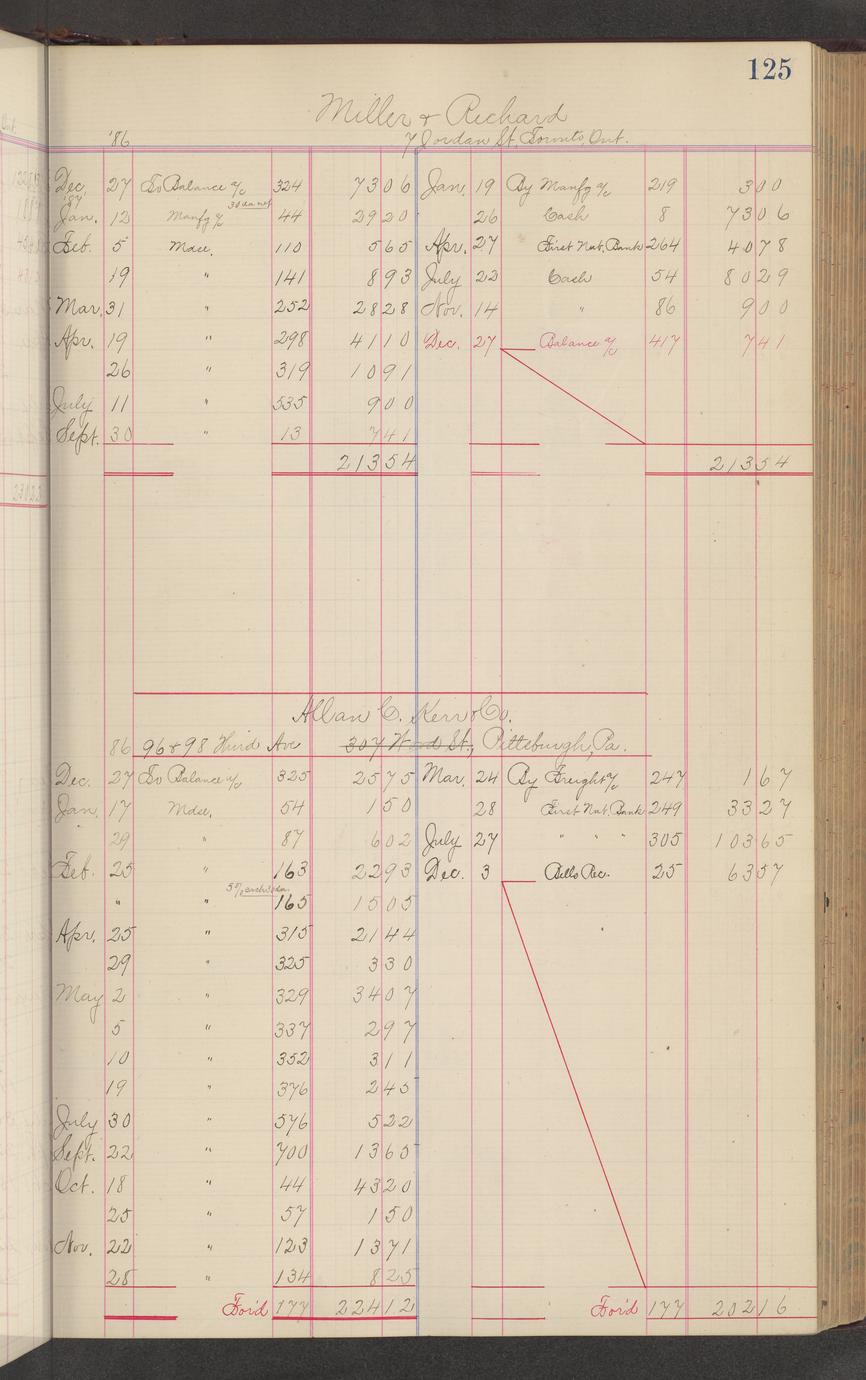 125
Miller & Richard
'86 7 Jordan St, Toronto, Ont.
Dec. 27 To Balance a/c 324 73 06 Jan. 19 By Manfg a/c 219 3 00
'87 30 da net
Jan. 12 Manfg a/c 44 29 20 26 Cash 8 73 06
Feb. 5 Mdse. 110 5 65 Apr. 27 First Nat. Bank 264 40 78
19 " 141 8 93 July 22 Cash 54 80 29
Mar. 31 " 252 28 28 Nov. 14 " 86 9 00
Apr. 19 " 298 41 10 Dec. 27 Balance a/c 417 7 41
26 " 319 10 91
July 11 " 535 9 00
Sept. 30 " 13 7 41
213 54 213 54
Allan C. Kerr & Co.
86 96 & 98 Third Ave 307 Wood St., Pittsburgh, Pa.
Dec. 27 To Balance a/c 325 25 75 Mar. 24 By Freight a/c 247 1 67
Jan. 17 Mdse. 54 1 50 28 First Nat. Bank 249 33 27
29 " 87 6 02 July 27 " " " 305 103 65
Feb. 25 " 163 22 93 Dec. 3 Bills Rec. 25 63 57
" " 5% cash 30 da. 165 15 05
Apr. 25 " 315 21 44
29 " 325 3 30
May 2 " 329 34 07
5 " 337 2 97
10 " 352 3 11
19 " 376 2 45
July 30 " 576 5 22
Sept. 22 " 700 13 65
Oct. 18 " 44 43 20
25 " 57 1 50
Nov. 22 " 123 13 71
28 " 134 8 25
For'd 177 224 12 For'd 177 202 16